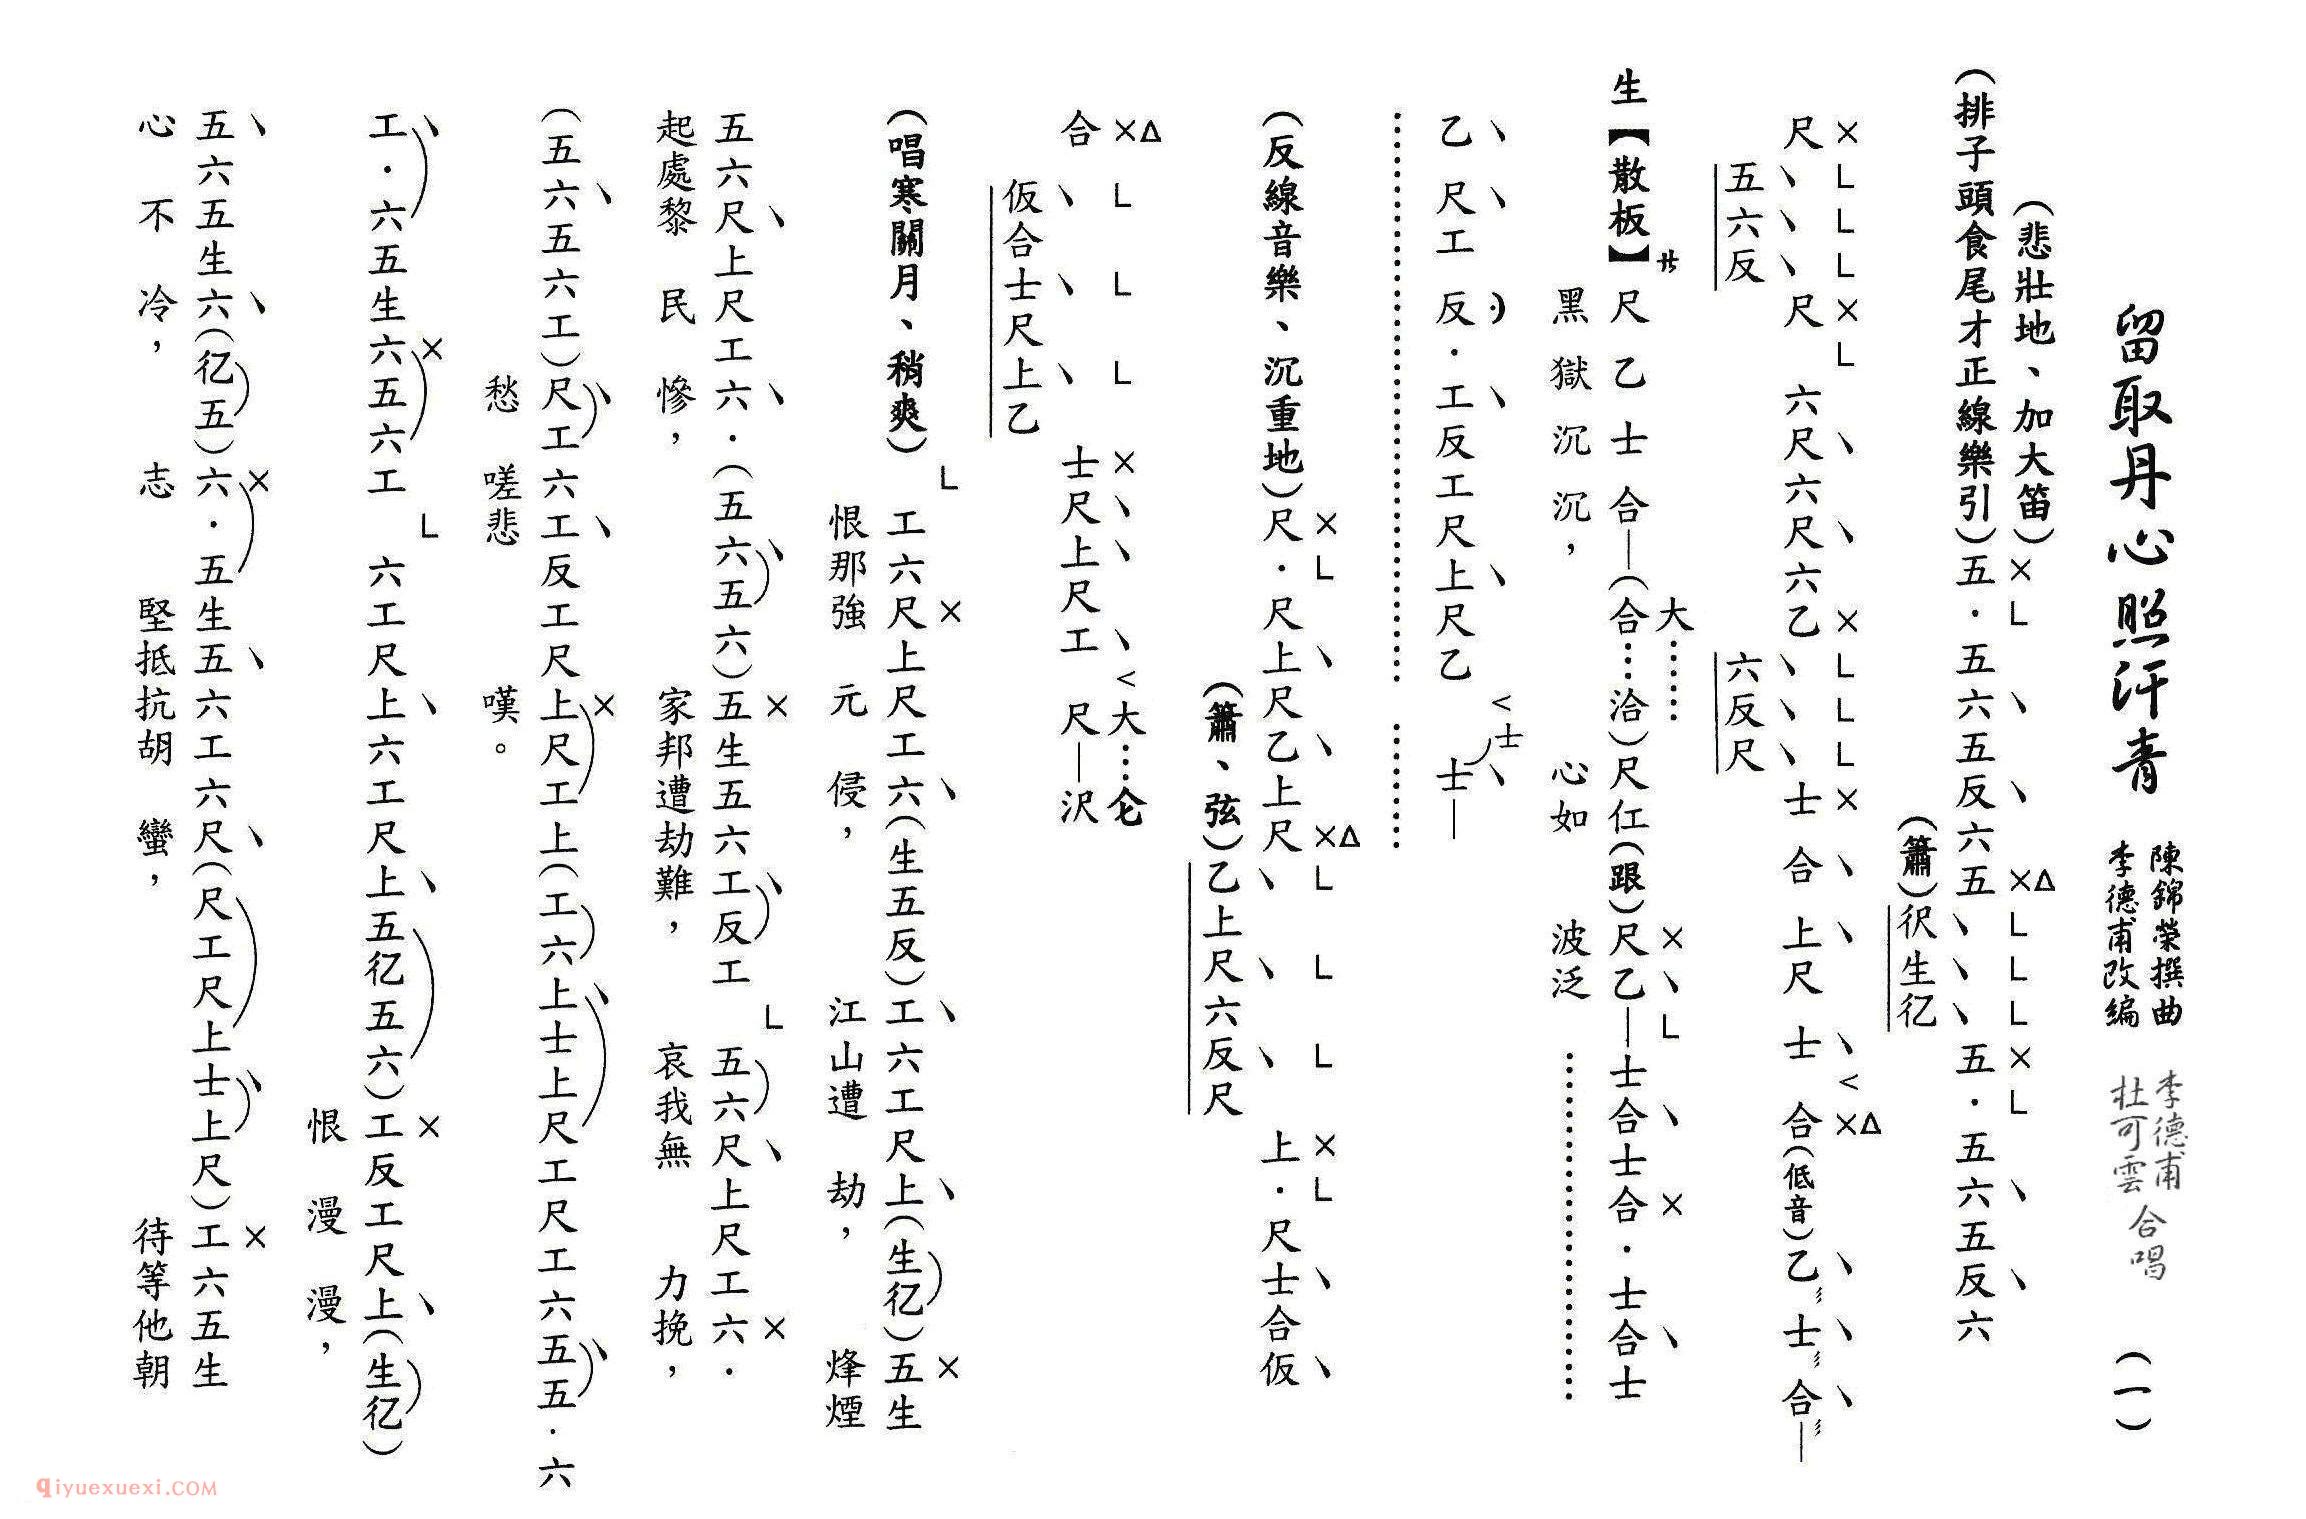 留取丹心照汗青 陳錦榮撰曲 李德甫改編 李德甫 杜可雲 合唱 (一)
(悲壯地、加大笛)
(排子頭食尾才正線樂引)五·五六五反六五 五·五六五反六
(簫)伬生亿
尺 尺六尺六尺六乙 士合上尺士合(低音)乙士合—
五六反 六反尺
生【散板】尺乙士合—(合⋯洽)尺仁(跟)尺乙—士合士合·士合士
大⋯⋯
黑獄沉沉,心如波泛
乙尺工反·工反工尺上尺乙 士—
士
(反線音樂、沉重地)尺·尺上尺乙上尺 上·尺士合仮
(簫、弦)乙上尺六反尺
合 士尺上尺工尺—沢
大⋯仑
仮合士尺上乙
(唱寒關月、稍爽)工六尺上尺工六(生五反)工六工尺上(生亿)五生
恨那強元侵,江山遭劫,烽煙
五六尺上尺工六·(五六五六)五生五六工反工 五六尺上尺工六·
起處黎民慘,家邦遭劫難,哀我無力挽,
(五六五六工)尺工六工反工尺上尺工上(工六上士上尺工尺工六五五·六
愁嗟悲嘆。
工·六五生六五六工 六工尺上六工尺上五亿五六)工反工尺上(生亿)
恨漫漫,
五六五生六(亿五)六·五生五六工六尺(尺工尺上士上尺)工六五生
心不冷,志堅抵抗胡蠻,待等他朝
qiyuexuexi.COM